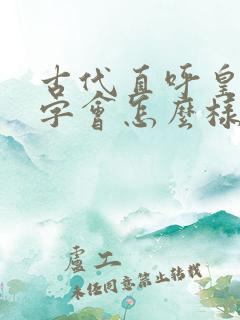 古代直呼皇
字會怎麼樣
盧工
未經同意禁止轉載